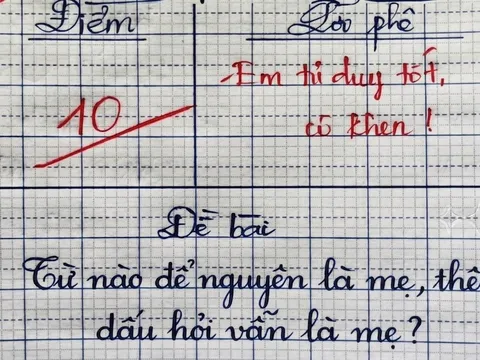 Điểm
Lời phê
10
-Em tư duy tốt,
cô khen !
Đề bài
Từ nào để nguyên là mẹ, thê
dấu hỏi vẫn là mẹ ?